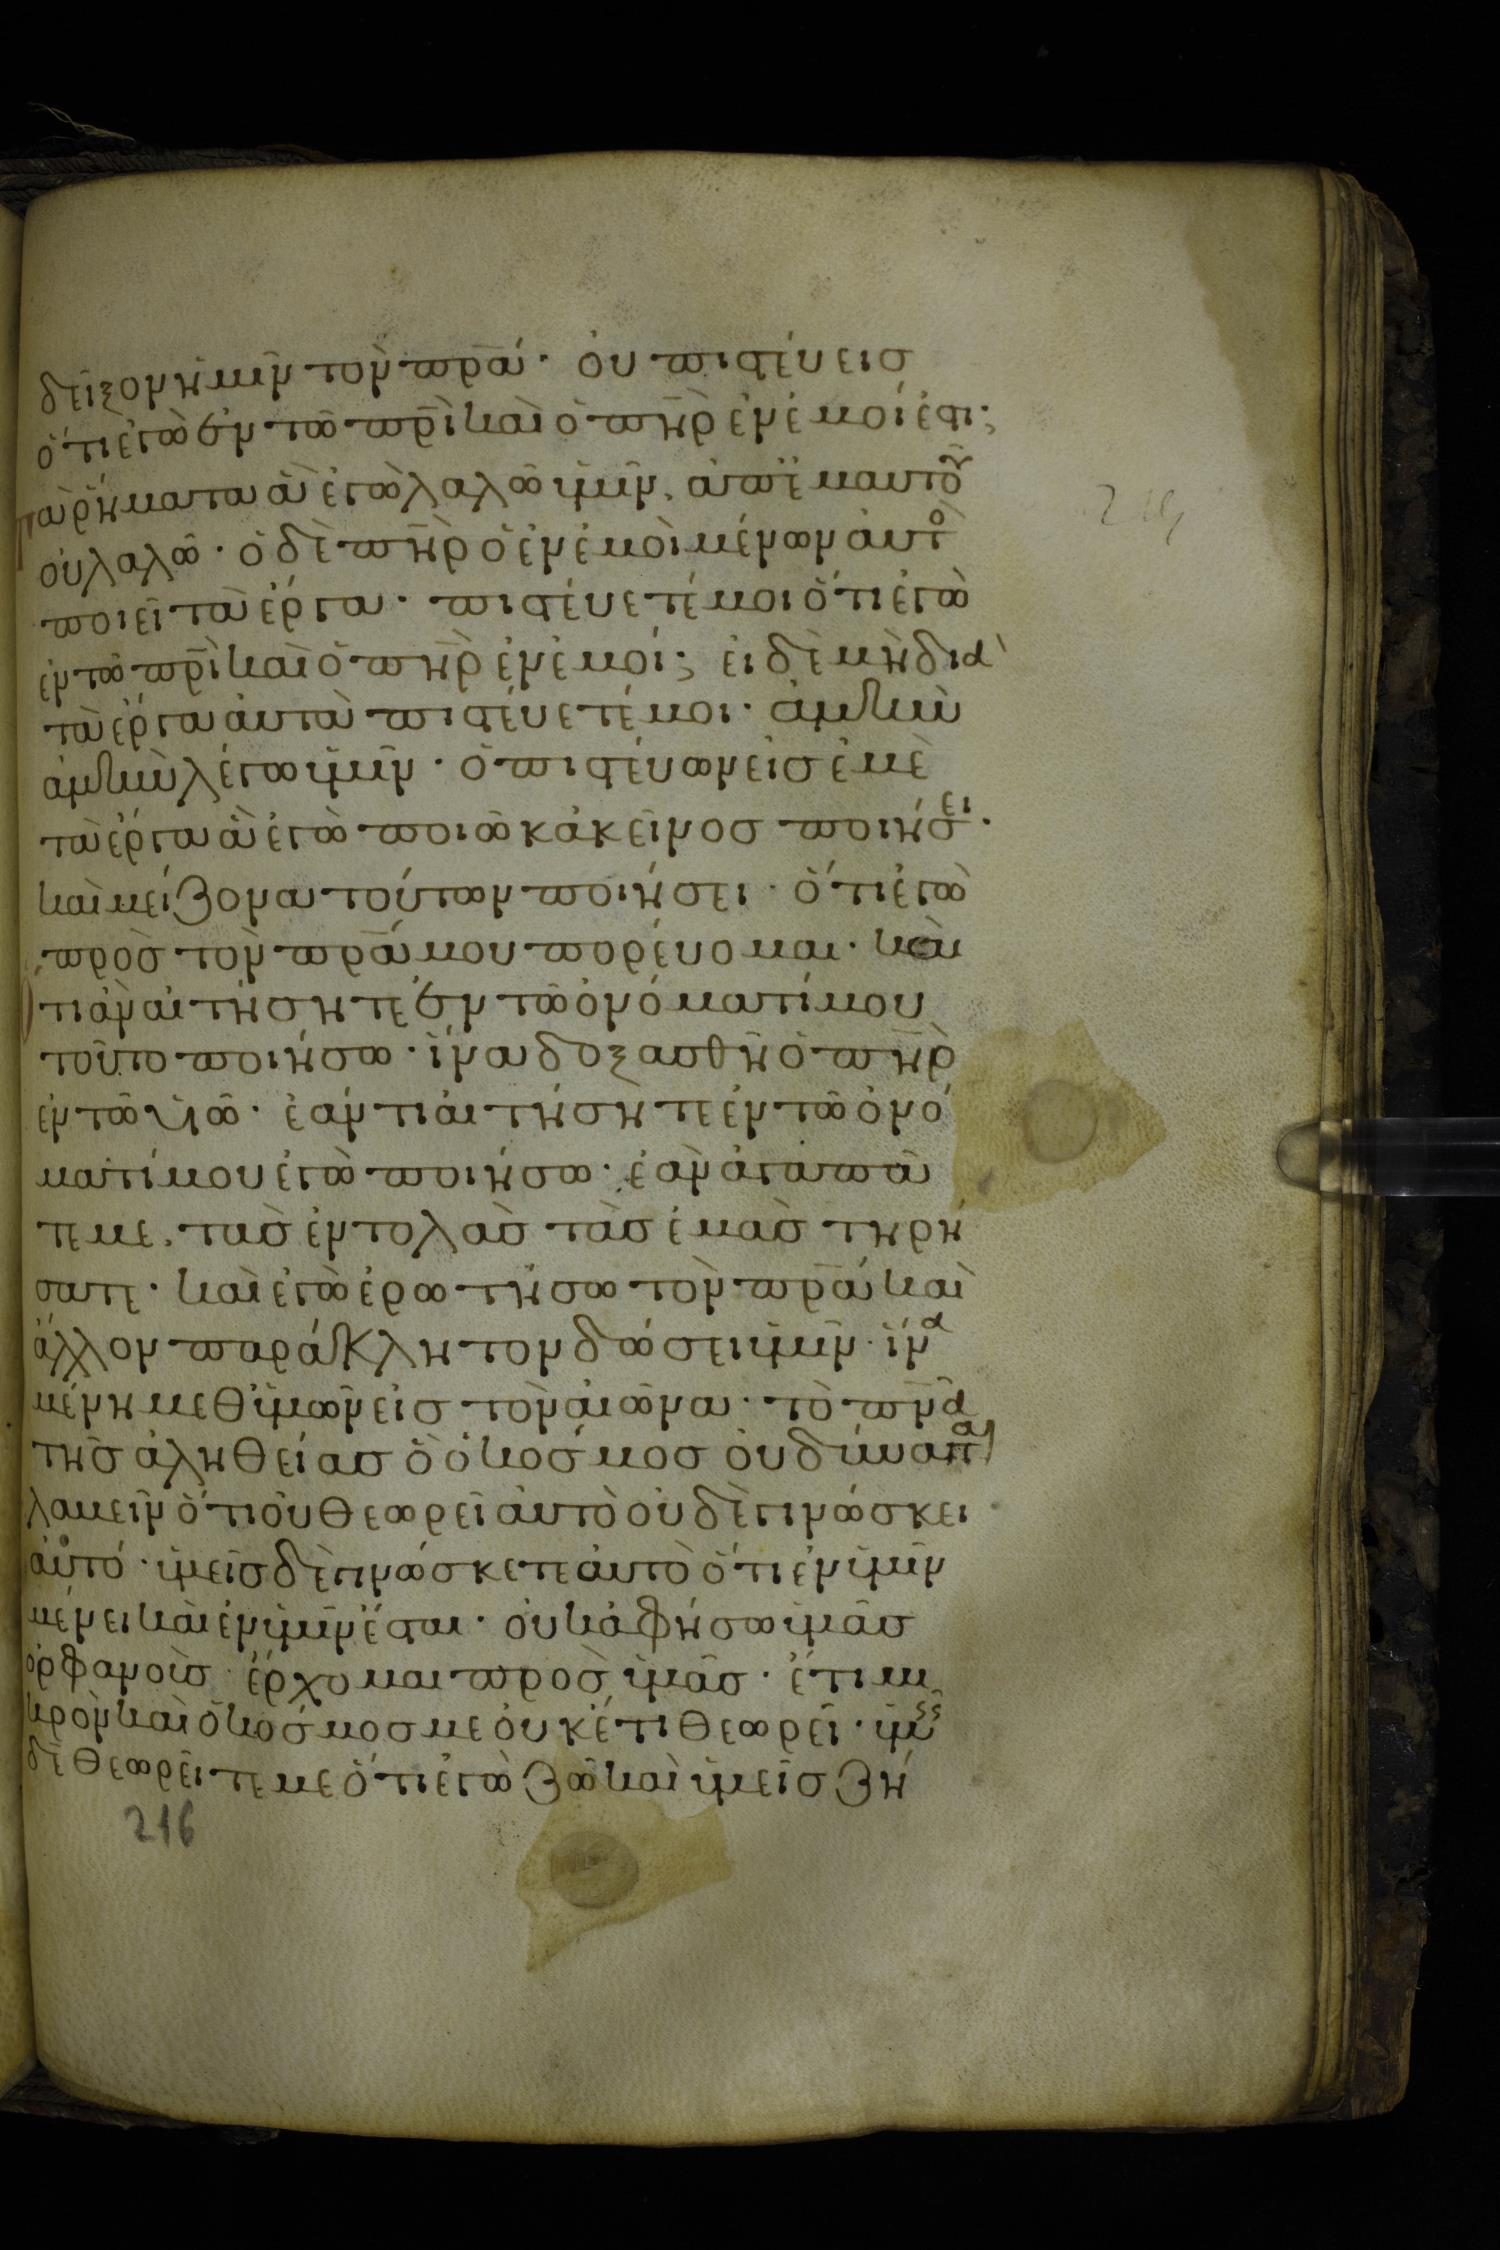 δεῖξον ἡμῖν τὸν πρ̅α̅· οὐ πιστεύεις
ὅτι ἐγὼ ἐν τῶ πρ̅ι̅ καὶ ὁ πη̅ρ̅ ἐν ἐμοί ἐστι;
τὰ ῥήματα ἃ ἐγὼ λαλῶ ὑμῖν, ἀπ' ἐμαυτοῦ
οὐ λαλῶ· ὁ δὲ πη̅ρ̅ ὁ ἐν ἐμοὶ μένων αὐτὸ
ποιεῖ τὰ ἔργα· πιστεύετέ μοι ὅτι ἐγὼ
ἐν τῶ πρ̅ι̅ καὶ ὁ πη̅ρ̅ ἐν ἐμοί; εἰ δὲ μὴ διὰ
τὰ ἔργα αὐτὰ πιστεύετέ μοι· ἀμὴν
ἀμὴν λέγω ὑμῖν· ὁ πιστεύων εἰς ἐμὲ
τὰ ἔργα ἃ ἐγὼ ποιῶ κἀκεῖνος ποιήσει·
καὶ μείζονα τούτων ποιήσει· ὅτι ἐγὼ
πρὸς τὸν πρ̅α̅ μου πορεύομαι· καὶ
τι ἂν αἰτήσητε ἐν τῶ ὀνόματί μου
τοῦτο ποιήσω· ἵνα δοξασθῆ ὁ πη̅ρ̅
ἐν τῶ υἱῶ· ἐάν τι αἰτήσητε ἐν τῶ ὀνό
ματί μου ἐγὼ ποιήσω· ἐὰν ἀγαπᾶ
τε με· τὰς ἐντολὰς τὰς ἐμὰς τηρή
σατε· καὶ ἐγὼ ἐρωτήσω τὸν πρ̅α̅ καὶ
ἄλλον παράκλητον δώσει ὑμῖν· ἵνα
μένη μεθ' ὑμῶν εἰς τὸν αἰῶνα· τὸ πν̅α̅
τῆς ἀληθείας ὃ ὁ κόσμος οὐ δύναται
λαβεῖν ὅτι οὐ θεωρεῖ αὐτὸ οὐδὲ γινώσκει
αὐτό· ὑμεῖς δὲ γινώσκετε αὐτὸ ὅτι ἐν ὑμῖν
μένει καὶ ἐν ὑμῖν ἔσται· οὐκ ἀφήσω ὑμᾶς
ὀρφανοὺς· ἔρχομαι πρὸς ὑμᾶς· ἔτι μι
κρὸν καὶ ὁ κόσμος με οὐκέτι θεωρεῖ· ὑμεῖς
δὲ θεωρεῖτε με ὅτι ἐγὼ ζῶ καὶ ὑμεῖς ζή
216